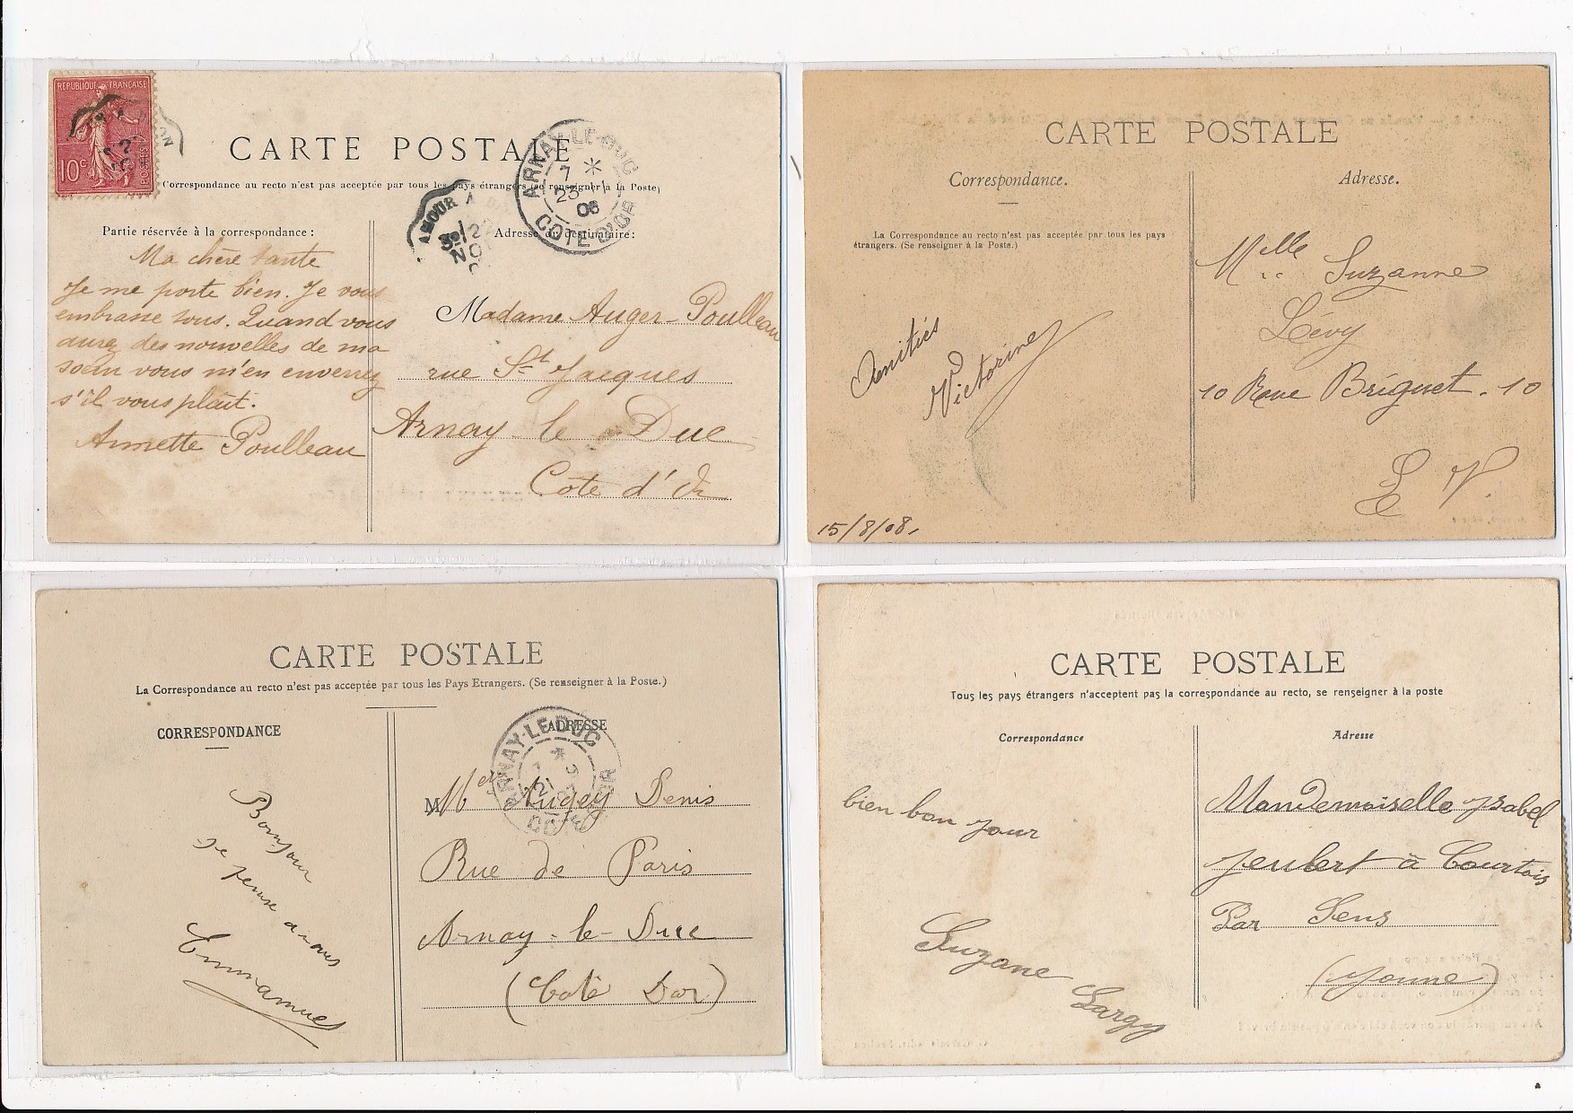 REPUBLIQUE FRANÇAISE
10c
POSTES
CARTE POSTALE
Correspondance au recto n'est pas acceptée par tous les pays étrangers (se renseigner à la Poste)
ARNAY-LE-DUC
7 *
23-11
06
COTE D'OR
AMOUR A
22
NO
Partie réservée à la correspondance :
Adresse du destinataire :
Ma chère tante
Je me porte bien. Je vous
embrasse tous. Quand vous
aurez des nouvelles de ma
soeur vous m'en enverrez
s'il vous plait.
Annette Poulleau
Madame Auger-Poulleau
rue St Jacques
Arnay le Duc
Côte d'Or
CARTE POSTALE
Correspondance.
Adresse.
La Correspondance au recto n'est pas acceptée par tous les pays
étrangers. (Se renseigner à la Poste.)
Amitiés
Victorine
15/8/08.
Melle Suzanne
Lévy
10 Rue Briguet. 10
E V.
CARTE POSTALE
La Correspondance au recto n'est pas acceptée par tous les Pays Etrangers. (Se renseigner à la Poste.)
CORRESPONDANCE
ADRESSE
ARNAY-LE-DUC
Bonjour
je pense a vous
Emmanuel
M
Denis
Rue de Paris
Arnay-le-Duc
(Cote Dor)
CARTE POSTALE
Tous les pays étrangers n'acceptent pas la correspondance au recto, se renseigner à la poste
Correspondance
Adresse
bien bon jour
Suzane
Largy
Mandemoiselle ysabel
Jeubert à Courtois
Par Sens
(yonne)